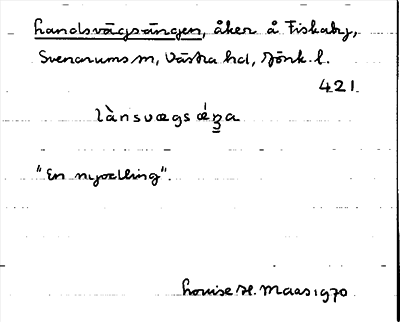 Landsvägsängen, åker å Fiskaby,
Svenarums sn, Västra hd, Jönk. l.
421.
lànsvægsǽŋa
"En nyodling".
Louise H. Maas 1970